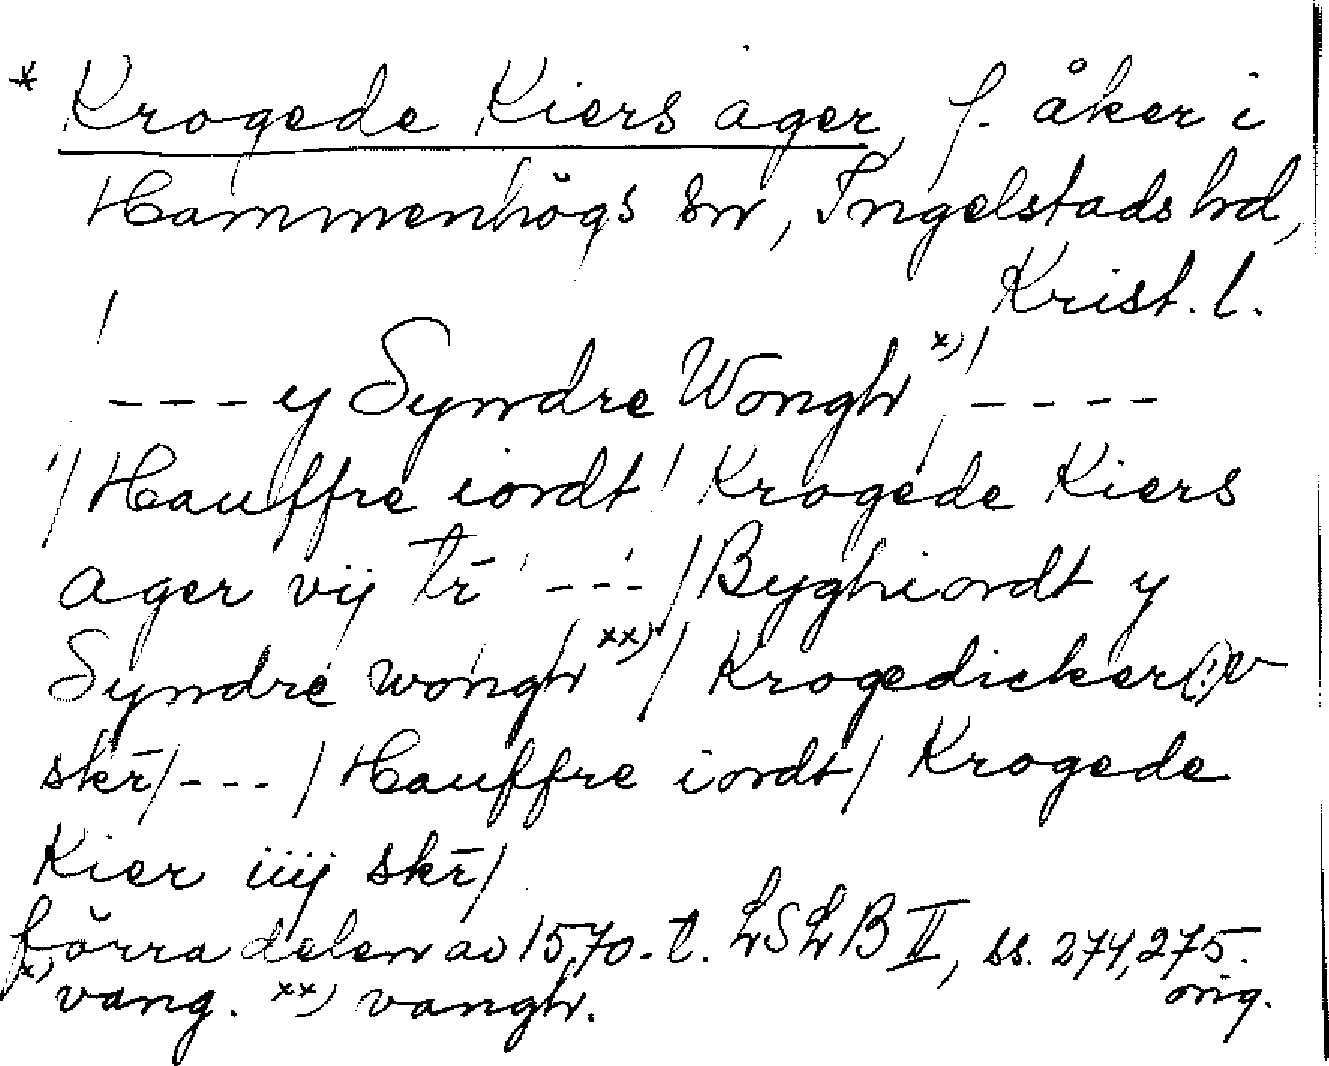 * Krogede Kiers ager, f. åker i
Hammenhögs sn, Ingelstads hd,
Krist. l.
- - - y Syndre Wongh x) / - - - -
/ Hauffre iordt / Krogede Kiers
ager vij tr̄ - - - / Byghiordt y
Syndre wongh xx) / Krogedicker (:) v
skr̄ / - - - / Hauffre iordt / Krogede
Kier iiij skr̄ /
förra delen av 1570-t. LSLB II, ss. 274, 275.
orig.
x) vang. xx) vangh.